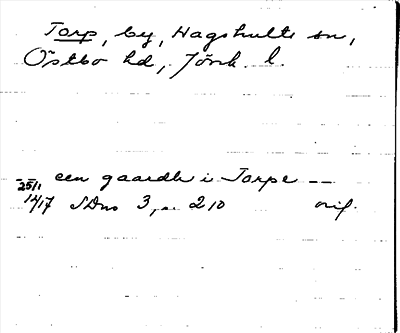 Torp, by, Hagshults sn,
Östbo hd, Jönk. l.
-- een gaardh i Torpe --
25/1
1417 SDns 3, s. 210 orig.